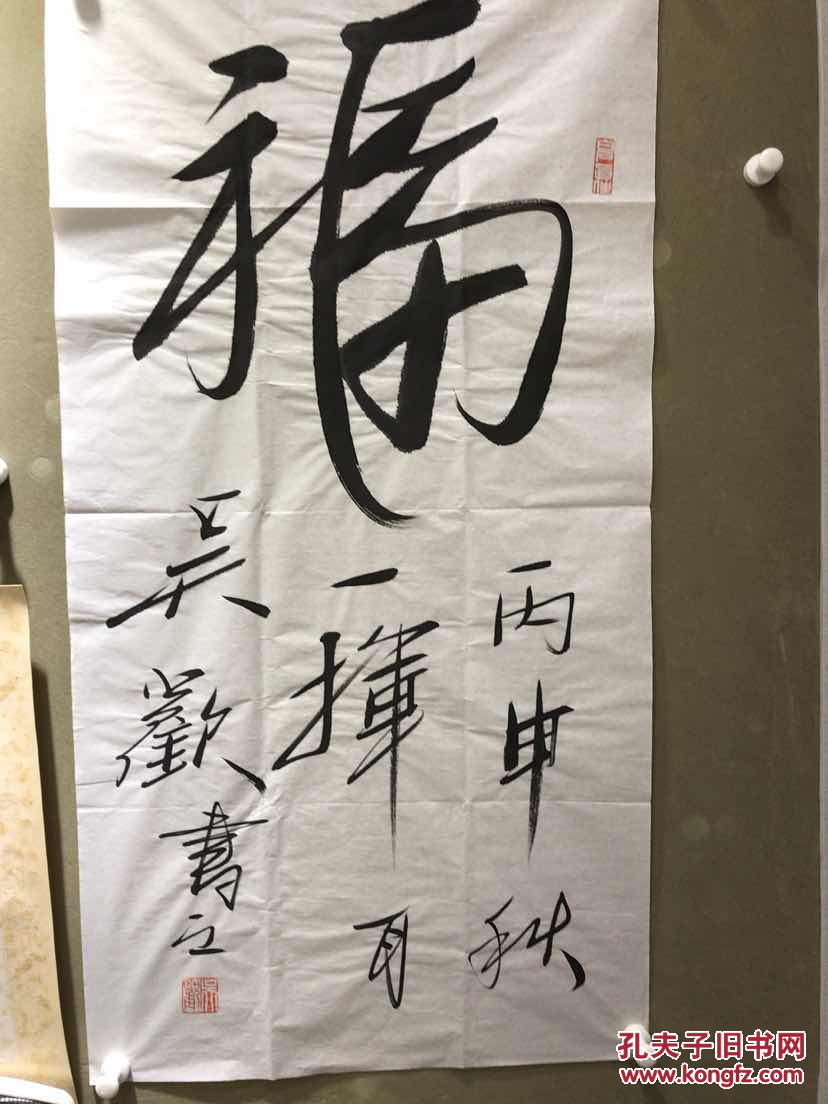 福
丙申秋
一揮耳
吴歡書之
孔夫子旧书网
www.kongfz.com